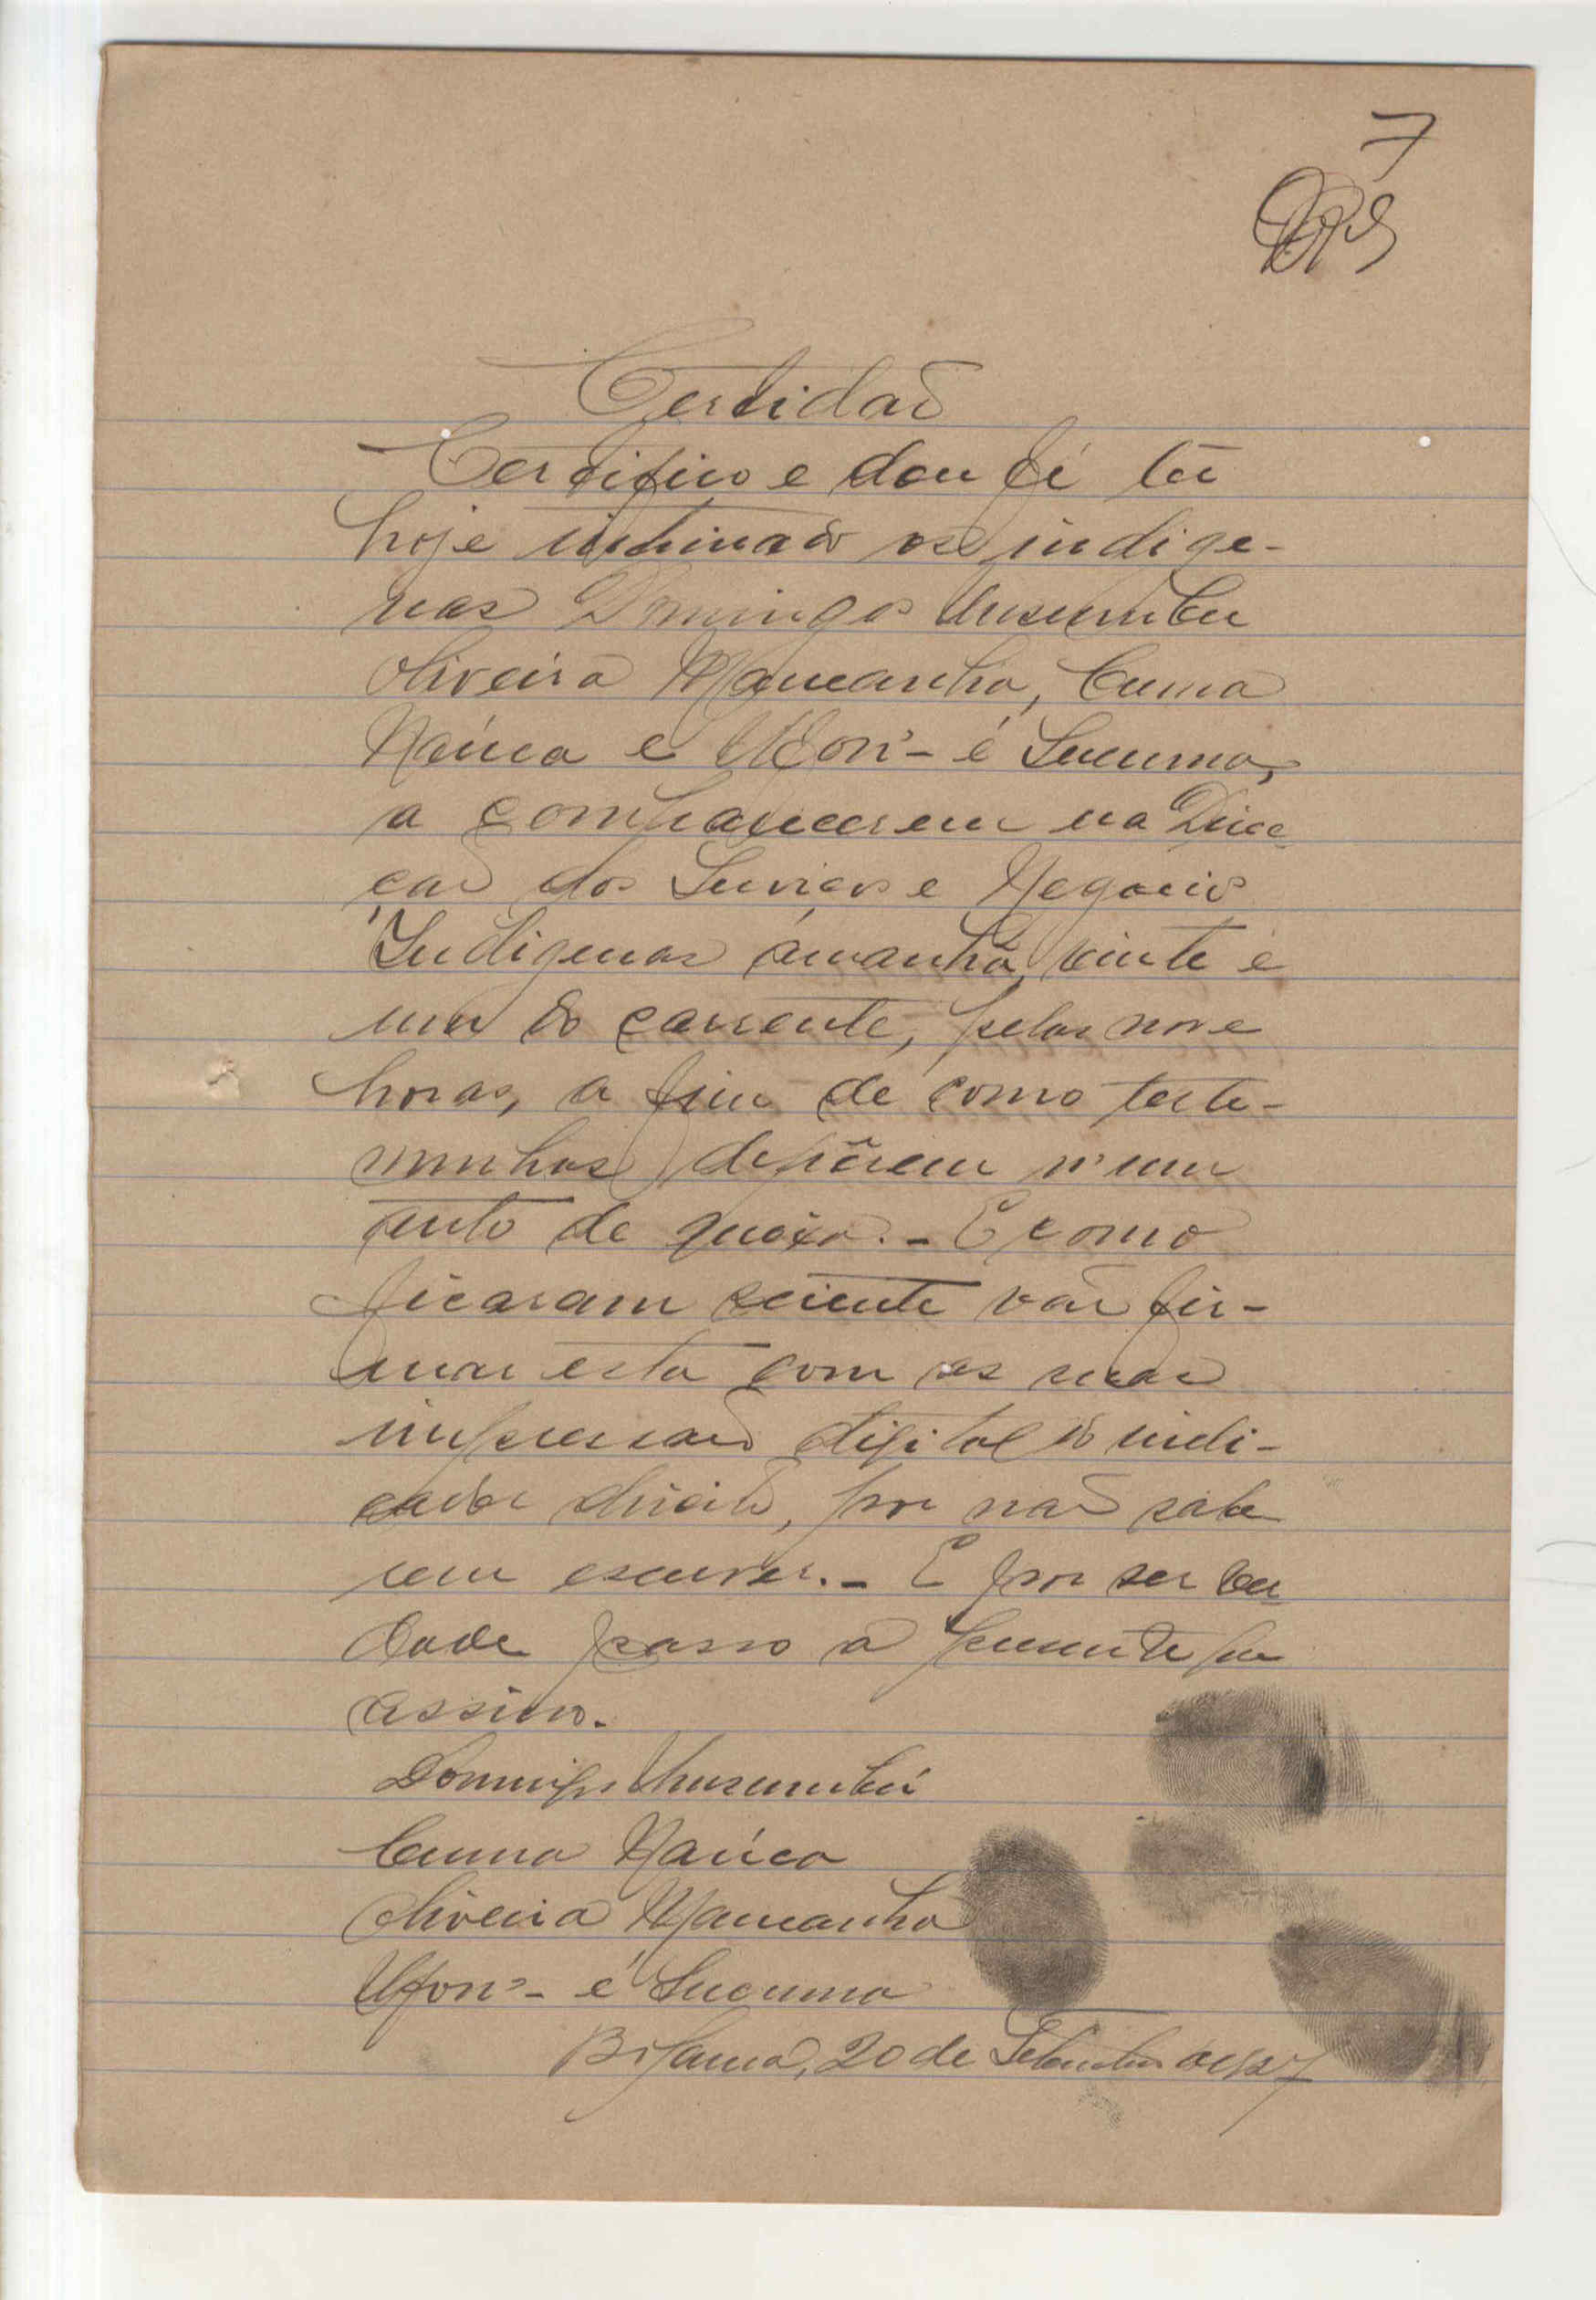 7
Certidaõ
Certifico e dou fé ter
hoje intimado os indige-
nas Domingos Unsumbu
Oliveira Mamcanha, Cuma
Naúca e é Sucuma,
a comparecerem na Direc
çaõ dos Serviços e Negocios
Indigenas ámanhã, vinte é
um do corrente, pelas nove
horas, a fim de como teste-
munhas depôrem n'um
auto de queixa. - E como
ficaram sciente vaõ fir-
mar esta com as suas
impressaõ digital do indi-
cador direito, por naõ sabe
rem escrever. - E por ser ver
dade passo a presente que
assino.
Domingos Unsumbú
Cuma Naúca
Oliveira Mamcanha
é Sucuma
Bolama, 20 de Setembro de 927